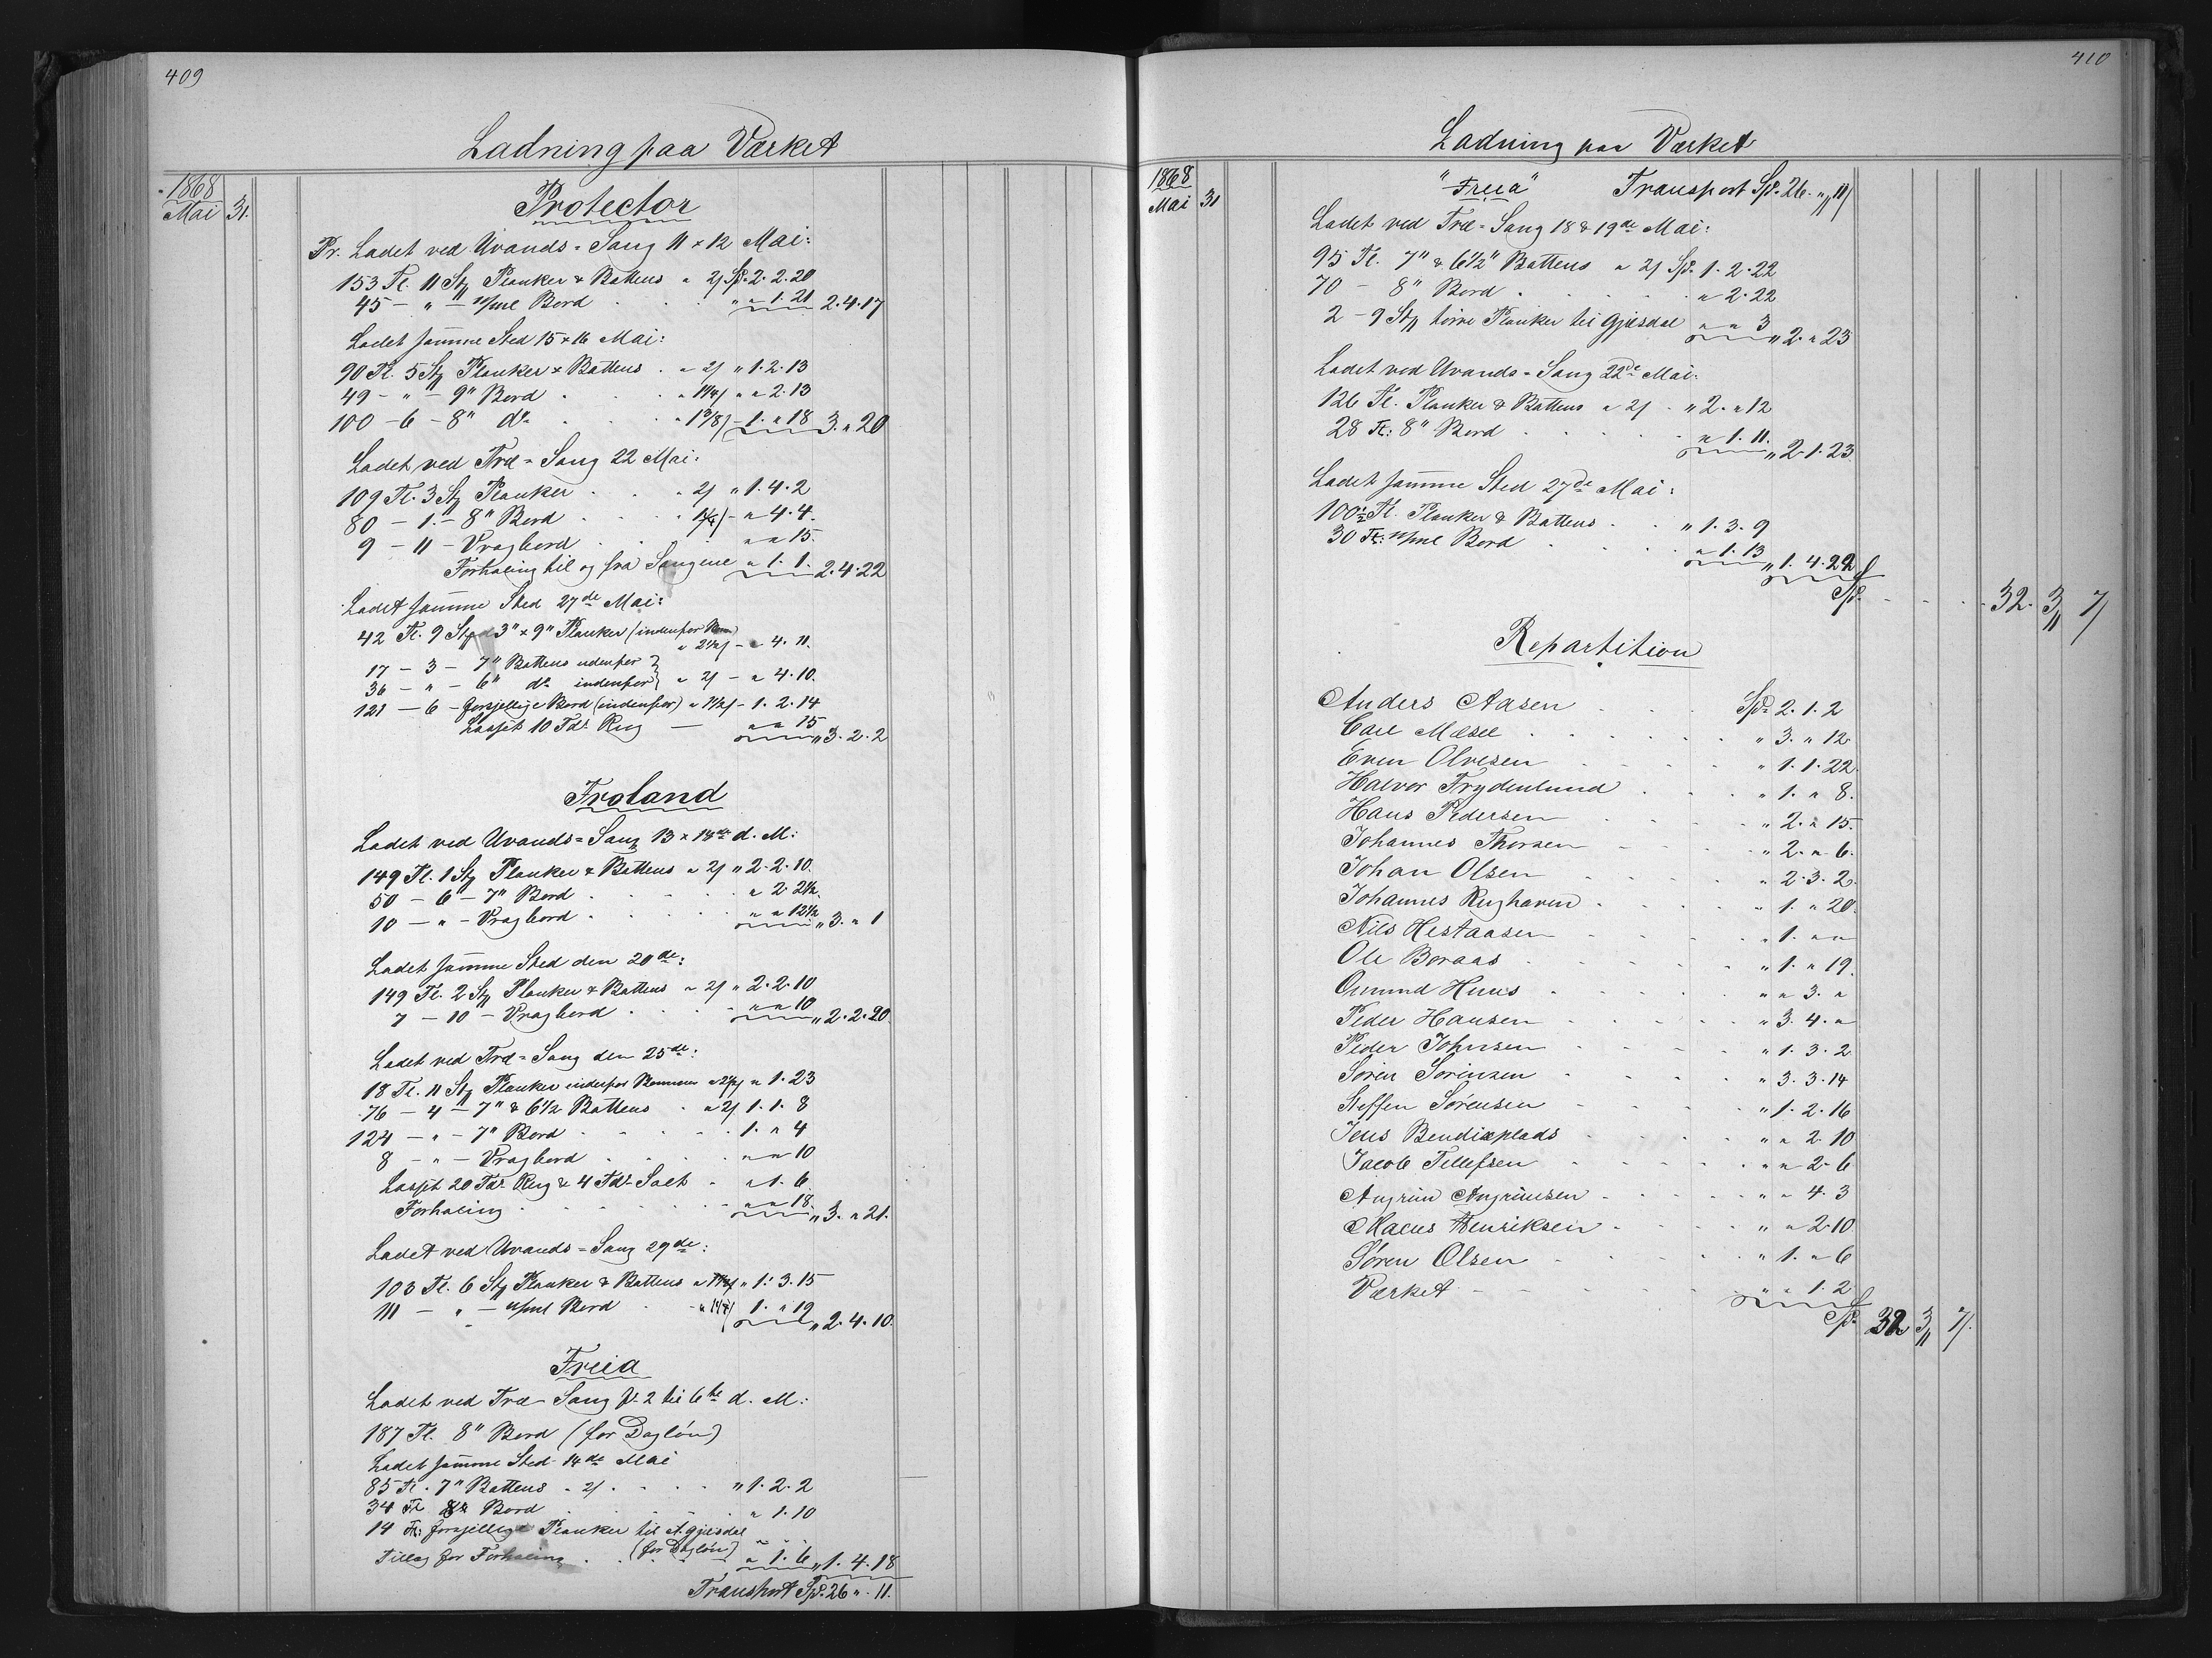 409
Ladning paa Værket
1868
Mai 31.
Protector
Pr. Ladet ved Uvands=Saug 11 & 12 Mai:
153 Tl. 11 Stz Planker & Battens " 2/ Sp. 2. 2. 20
45 - " - Bord . . . " " 1. 21 2. 4. 17
Ladet samme Sted 15 & 16 Mai:
90 Tl. 5 Stz Planker & Battens . " 2/ " 1. 2. 13
49 - " - 9" Bord . . . " " 2. 13
100 - 6 - 8" do . . . - 1. " 18 3. " 20
Ladet ved Træ=Saug 22 Mai:
109 Tl. 3 Stz Planker . . . " 2/ " 1. 4. 2
80 - 1. - 8" Bord . . . - " 4. 4.
9 - 11 - Vragbord . . . " " 15.
Forhaling til og fra Saugene " 1. 1. 2. 4. 22
Ladet samme Sted 27de Mai:
42 Tl. 9 Stz 3" x 9" Planker (indenfor
" 2 1/2/ - " 4. 11.
17 - 3 - 7" Battens udenfor }
36 - " - 6" do indenfor } " 2/ - " 4. 10.
121 - 6 - forsjellige Bord (indenfor) " 1 1/2/ - 1. 2. 14
Losset 10 Tdr Rug — " " 15
" 3. 2. 2
Froland
Ladet ved Uvands=Saug 13 & 14de d. M:
149 Tl. 1 Stz Planker & Battens " 2/ " 2. 2. 10.
50 - 6 - 7" Bord . . . " 2. 2 1/2.
10 - " - Vragbord . . . " " 12 1/2 " 3. " 1
Ladet samme Sted den 20de:
149 Tl. 2 Stz Planker & Battens " 2/ " 2. 2. 10
7 - 10 - Vragbord . . . " " 10 " 2. 2. 20.
Ladet ved Træ=Saug den 25de:
18 Tl. 11 Stz Planker indenfor Bommen " 2 1/2/ " 1. 23
76 - 4 - 7" & 6 1/2 Battens . " 2/ 1. 1. 8
124 - " - 7" Bord . . . 1. " 4
8 - " - Vragbord . . . " " 10
Losset 20 Tdr Rug & 4 Tdr Salt - " 1. 6
Forhaling . . . " " 18. " 3. " 21.
Ladet ved Uvands=Saug 29de:
103 Tl. 6 Stz Planker & Battens " 1. 3. 15
111 - " - Bord . . . 1. " 19 " 2. 4. 10.
Freia
Ladet ved Træ-Saug fr 2 til 6te d. M:
187 Tl. 8" Bord (for Dagløn)
Ladet samme Sted 14de Mai
85 Tl. 7" Battens " 2/ . . . " 1. 2. 2
34 Tl 8" Bord . . . " 1. 10
14 Tl: forsjellige Planker til A. Gjesdal
(for Dagløn) " " "
Tillæg for Forhaling . . " 1. 6 " 1. 4. 18
Transport Spd. 26 " . 11.
410
Ladning paa Værket
1868
Mai 31
"Freia" Transport Spd. 26. " 11/
Ladet ved Træ=Saug 18 & 19de Mai:
95 Tl. 7" & 6 1/2" Battens " 2/ Spd. 1. 2. 22
70 - 8" Bord . . . " 2. 22
2 - 9 Stz tørre Planker til Gjesdal " " 3 " 2. " 23
Ladet ved Uvands=Saug 22de Mai:
126 Tl. Planker & Battens " 2/ . " 2. " 12
28 Tl: 8" Bord . . . " 1. 11. " 2. 1. 23
Ladet samme Sted 27de Mai:
100 1/2 Tl. Planker & Battens . . " 1. 3. 9
30 Tl: Bord . . . " 1. 13 " 1. 4. 22
Spd. . . . 32. 3 " 7/
Repartition
Anders Aasen . . . Spd. 2. 1. 2
Carl Mælæe . . . " 3. " 12
Even Olvesen . . . " 1. 1. 22.
Halvor Frydenlund . . . " 1. " 8.
Hans Pedersen . . . " 2. " 15.
Johannes Thorsen . . . " 2. " 6.
Johan Olsen . . . " 2. 3. 2.
Johannes Rughaven . . . " 1. " 20.
Nils Hestaasen . . . " 1. " "
Ole Boraas . . . " 1. " 19.
Omund Huus . . . " " 3. "
Peder Hansen . . . " 3. 4. "
Peder Johnsen . . . " 1. 3. 2
Søren Sørensen . . . " 3. 3. 14
Steffen Sørensen . . . " 1. 2. 16
Jens Bendixplads . . . " " 2. 10
Jacob Tellefsen . . . " " 2. 6
Angrim Angrimsen . . . " " 4. 3
Maeus Henriksen . . . " " 2. 10
Søren Olsen . . . " 1. " 6
Værket . . . " " 1. 2
Spd. 32 3 " 7/.